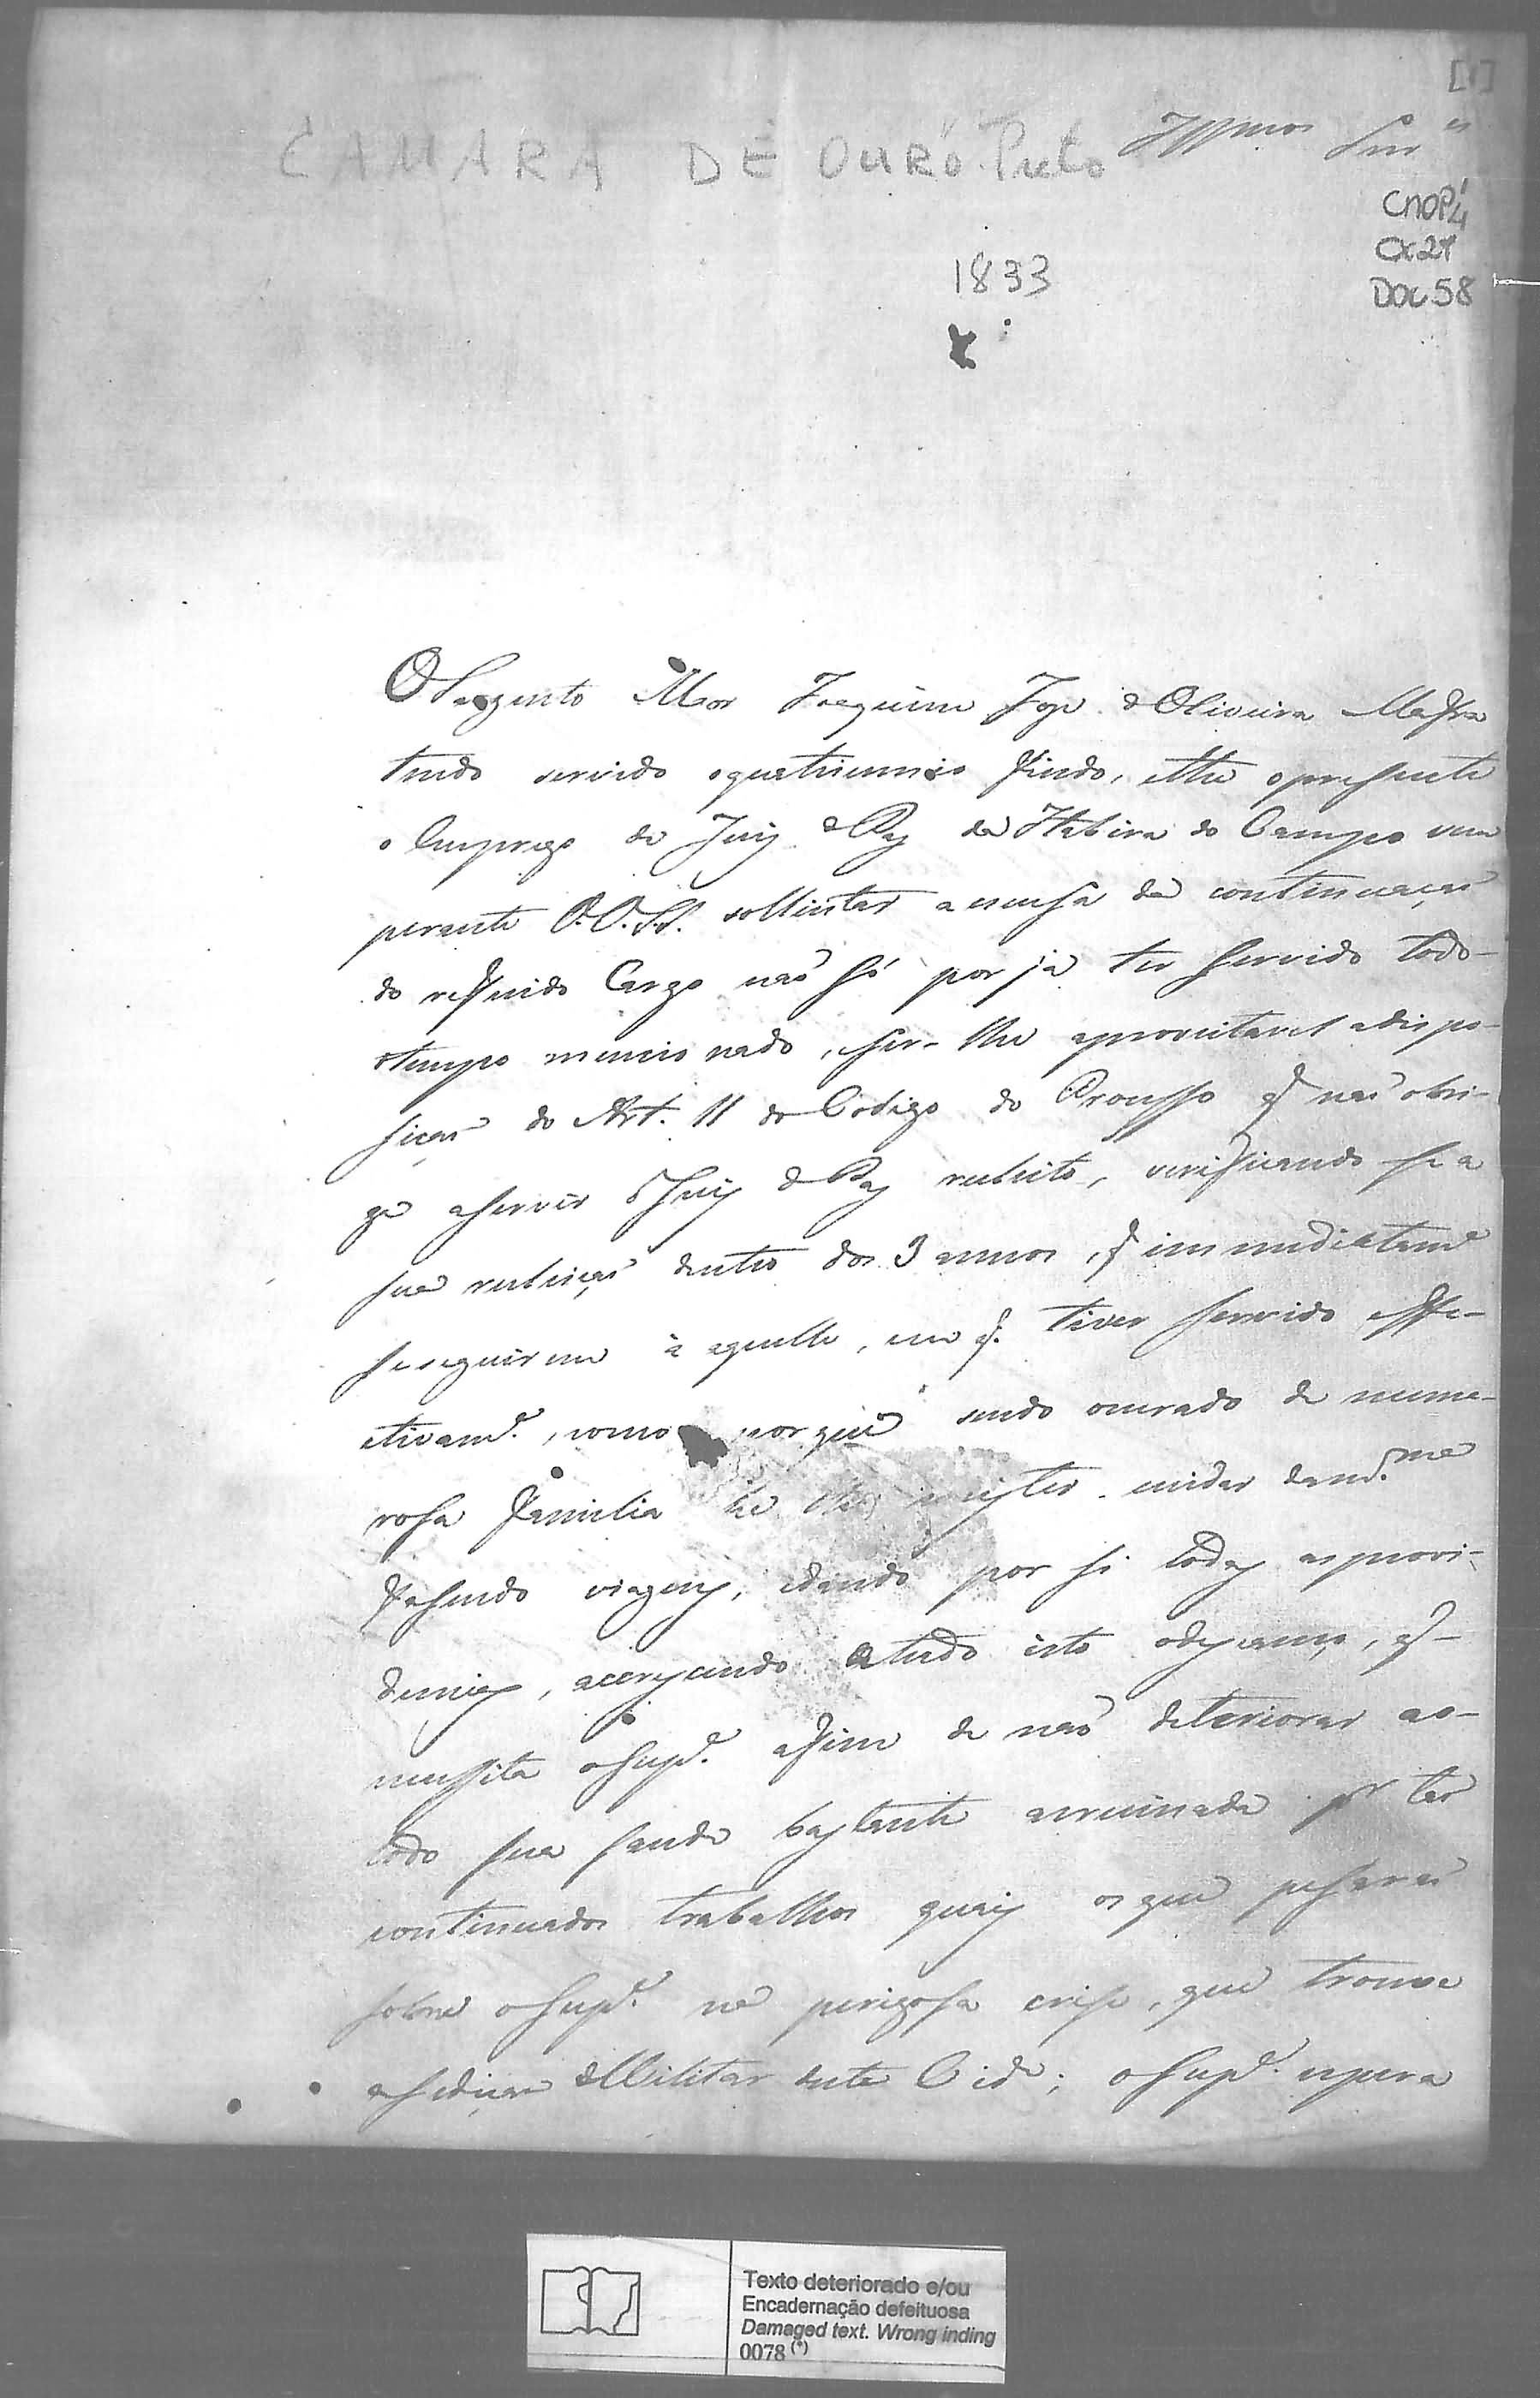 [1]
CAMARA DE OURO Preto Illmos Snr.es
CMOP4
Cx 27
DOC 58
1833
O Sargento Mor Joaquim Joze d'Oliveira Mafra
tendo servido o quatriennio findo, ethe o prezente
o Emprego de Juiz de Paz da Itabira do Campo vem
perante V.V.S.S. sollicitar a escusa da continuaçaõ
do referido Cargo naõ só por já ter servido todo-
o tempo mencionado, e ser-lhe aproveitavel a dispo-
siçaõ do Art. 11 do Codigo do Processo q naõ obri-
ga a servir o Juiz de Paz reeleito, verificando se a
sua reeleiçaõ dentro dos 3 annos, q immediatame
se seguirem à aquelle, em q. tiver servido effe-
ctivame., como porque sendo onerado de nume-
rosa Familia he lhe mister cuidar
fasendo viagens, e dando por si todas as provi-
dencias, acrescendo a tudo isto o descanço, q-
necessita o Supe. afim de naõ deteriorar ao-
todo sua saude bastante arruinada pr. taes
continuados trabalhos quaes os que pesaraõ
sobre o Supe. na perigosa crise, que trouxe
a sediçaõ Militar desta Cide; o Supe. espera
Texto deteriorado e/ou
Encadernação defeituosa
Damaged text. Wrong inding
0078 (*)